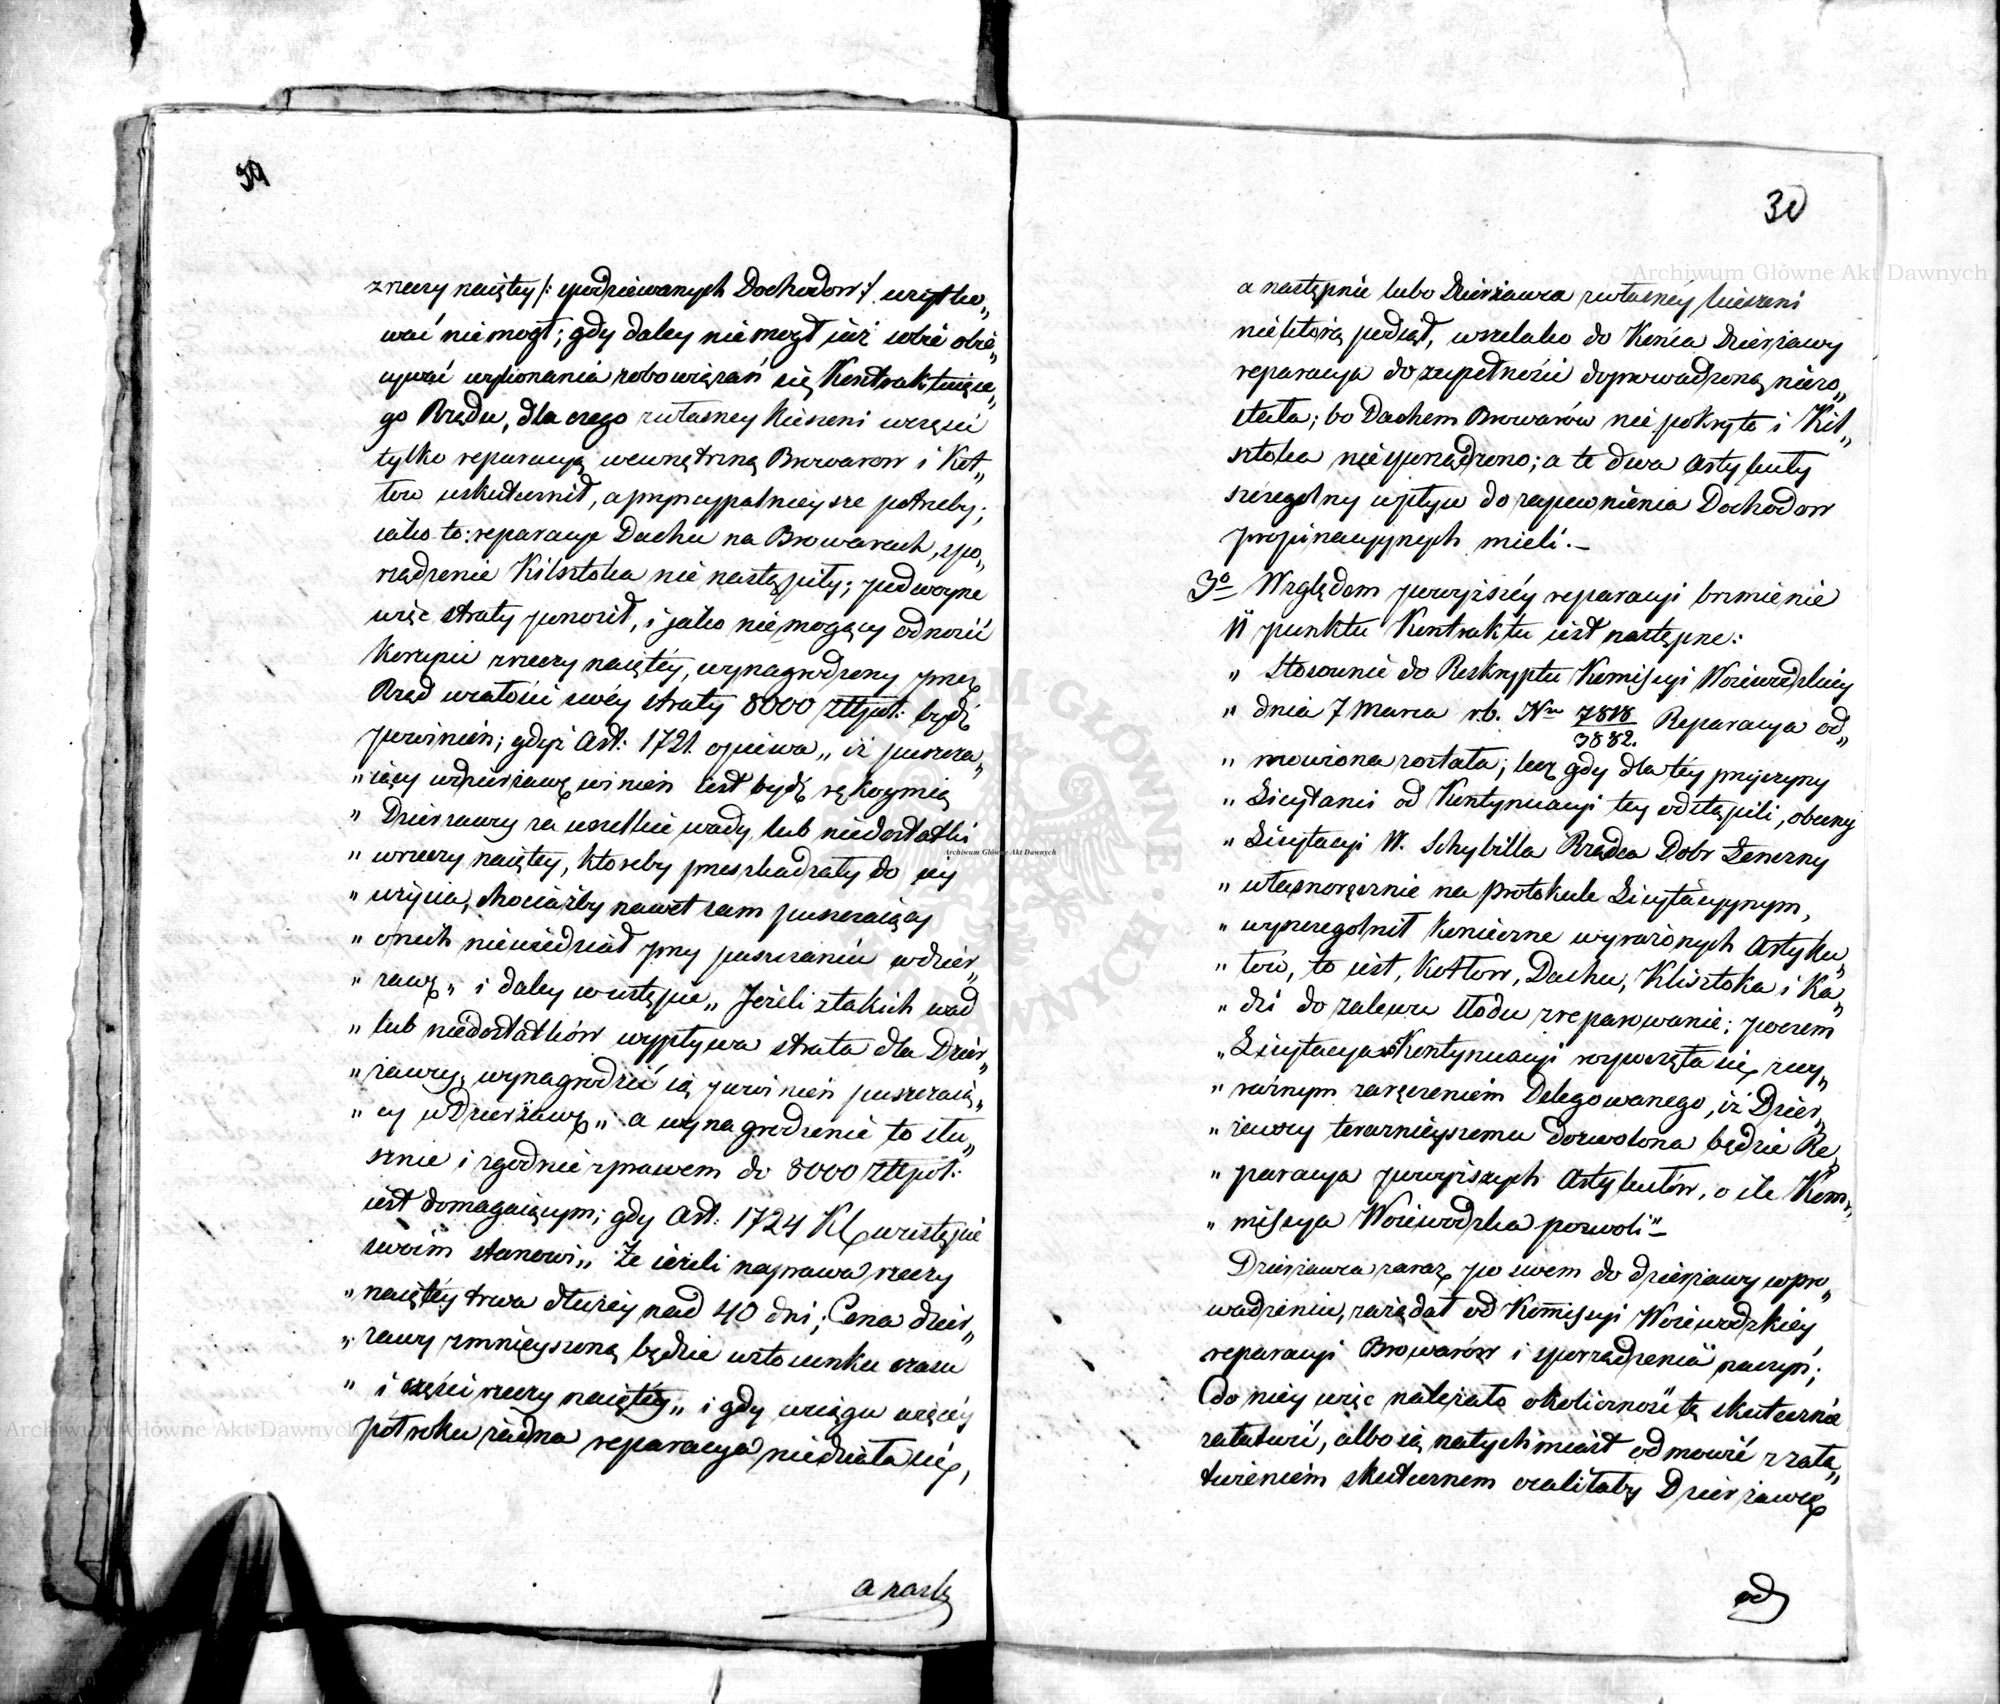 30
zrzeczy naiętey /: spodziewanych Dochodow :/ uzysku„
wać niemogł; gdy daley niemogł iuż sobie obie„
cywać wykonania zobowiązań się Kontraktuiące„
go Rządu, dla czego zwłasney kieszeni wczęści
tylko reparacyą wewnętrzną Browarow i Kot„
łow uskutecznił, a pryncypalnieysze potrzeby;
iako to: reparacye Dachu na Browarach, spo„
rządzenie Kilsztoka nie nastąpiły; podwoyne
więc straty ponosił, i jako niemogący odnosić
korzyści zrzeczy naiętéy, wynagrodzony przez
Rząd wcałości swéy straty 8000 Złtpol: bydź
powinien; gdyż Art: 1721. opiewa „iż puszcza„
„iący wdzierżawę winien iest bydź rękoymią
„Dzierzawcy za wszelkie wady lub niedostatki
„wrzeczy naiętey, ktoreby przeszkadzały do iey
„użycia, chociażby nawet sam puszczaiący
„onych niewiedział przy puszczaniu wdzier„
„żawę„ i daley wustępie „Jeżeli ztakich wad
„lub niedostatków wypływa strata dla Dzier„
„żawcy, wynagrodzić ią powinien puszczaią„
„cy wDzierżawę„ a wynagrodzenie to słu„
sznie i zgodnie zprawem do 8000 Złtpol:
iest domagaiącym; gdy Art: 1724 KC wustępie
swoim stanowi „Że ieżeli naprawa rzeczy
„naiętéy trwa dłużéy nad 40 dni; Cena dzier„
„żawy zmnieyszoną będzie wstosunku czasu
„i części rzeczy naiętéy„ i gdy wciągu więcéy
pół roku żadna reparacya niedziała się,
a nastę
30
a następnie lubo Dzierżawca zwłasnéy kieszeni
niektórą podiął, wszelako do Końca Dzierżawy
reparacya do zupełności doprowadzoną niezo„
stała; bo Dachem Browarów nie pokryto i Kil„
sztoka niesporządzono; a te dwa Artykuły
szczegolny wpływ do zapewnienia Dochodow
propinacyynych mieli.–
3o Względem powyższéy reparacyi brzmienie
11 punktu Kontraktu iest następne:
„Stosownie do Reskryptu Komissyi Woiewodzkiey
„dnia 7 Marca r.b. Nro 7818/3882. Reparacya od„
„mowiona została; lecz gdy dla tey przyczyny
„Licytanci od Kontynuacyi tey odstąpili, obecny
„Licytacyi W. Schybilla Rządca Dobr Żeneczny
„własnoręcznie na protokule Licytacyynym,
„wyszczegolnił konieczne wyrażonych Artyku„
„łow, to iest, Kotłow, Dachu, Klisztoka i Ka„
„dzi do zalewu słodu zreparowanie; poczem
„Licytacya w Kontynuacyi rozpoczęła się zwy„
„raźnym zaręczeniem Delegowanego, iż Dzier„
„żawcy teraznieyszemu dozwolona będzie Re„
„paracya powyższych Artykułów, o ile Kom„
„missya Woiewodzka pozwoli"–
Dzierżawca zaraz po swem do dzierżawy wpro„
wadzeniu, zażądał od Komissyi Woiewodzkiey
reparacyi Browarów i sporządzenia naczyń;
do niey więc należało okoliczność tę skutecznie
załatwić, albo ią natychmiast odmowić z zała„
twieniem skutecznem ocaliłaby Dzierżawcę
od